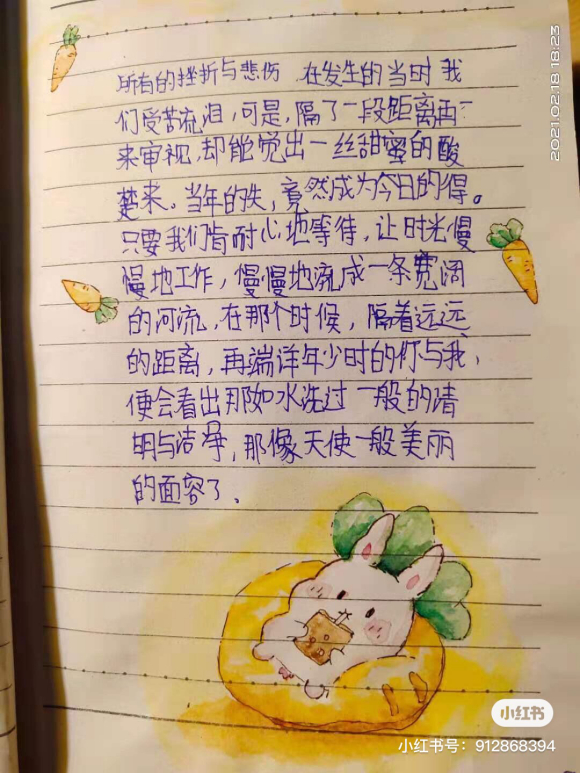 所有的挫折与悲伤 在发生的当时 我
们受苦流泪，可是，隔了一段距离再
来审视，却能觉出一丝甜蜜的酸
楚来。当年的失，竟然成为今日的得。
只要我们肯耐心地等待，让时光慢
慢地工作，慢慢地流成一条宽阔
的河流，在那个时候，隔着远远
的距离，再端详年少时的你与我，
便会看出那如水洗过一般的清
明与洁净，那像天使一般美丽
的面容了。
2021.02.18 18:23
小红书
小红书号：912868394